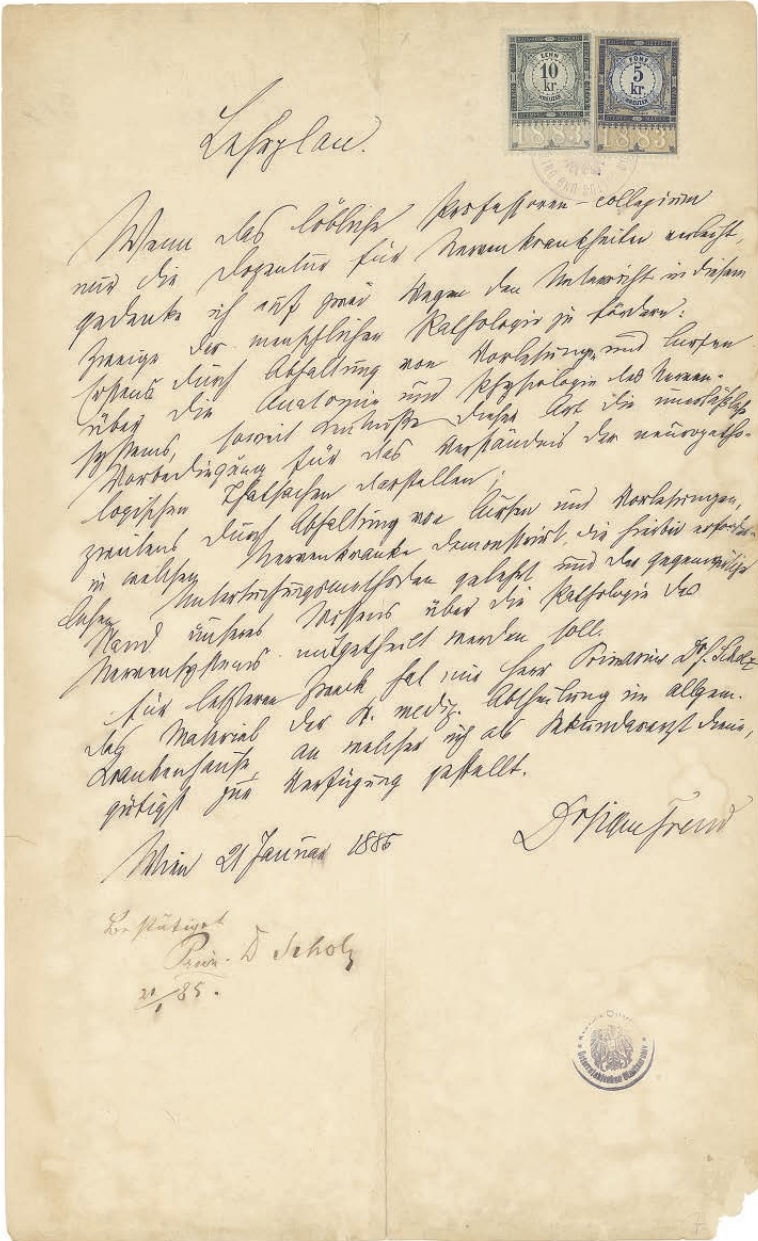 ZEHN
10
kr.
KREUZER
FÜNF
5
kr.
KREUZER
1883
1883
Lehrplan.
Wenn das löbliche Professoren-collegium
mir die Dozentur für Nervenkrankheiten verleiht,
gedenke ich auf zwei Wegen den Unterricht in diesem
Zweige der menschlichen Pathologie zu fördern:
Erstens durch Abhaltung von Vorlesungen und Cursen
über die Anatomie und Physiologie des Nerven-
systems, soweit Kenntniße dieser Art die unerläßliche
Vorbedingung für das Verständnis der neuropatho-
logischen Thatsachen darstellen;
zweitens durch Abhaltung von Cursen und Vorlesungen,
in welchen Nervenkranke demonstrirt, die hierbei erforder-
lichen Untersuchungsmethoden gelehrt und der gegenwärtige
Stand unseres Wissens über die Pathologie des
Nervensystems mitgetheilt werden soll.
Für letzteren Zweck hat mir Herr Primarius Dr. Scholz
das Material der mediz. Abtheilung im allgem.
Krankenhause, an welcher ich als Sekundararzt diene,
gütigst zur Verfügung gestellt.
Dr Sigm Freud
Wien 21 Januar 1885
Bestätiget
Prim. D Scholz
21/1 85.
Österreichisches Staatsarchiv